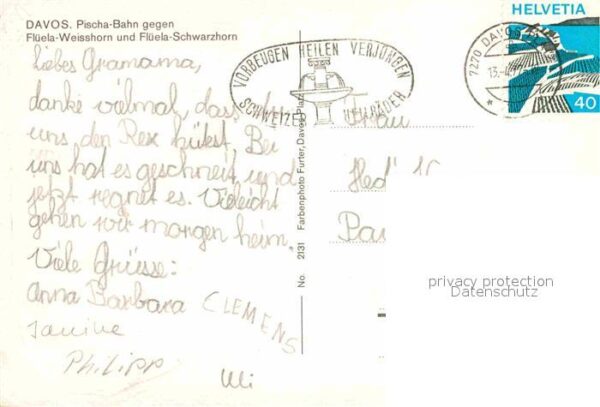 DAVOS. Pischa-Bahn gegen
Flüela-Weisshorn und Flüela-Schwarzhorn
HELVETIA
40
7270 DAVOS
VORBEUGEN HEILEN VERJÜNGEN
SCHWEIZER HEILBÄDER
liebes Gramama,
danke vielmal, dass du
uns den Rex hütest. Bei
uns hat es geschneit und
jetzt regnet es. Vieleicht
gehen wir morgen heim.
Viele Grüsse:
Anna Barbara
CLEMENS
Janine
Philipp
Ulli
No. 2131 Farbenphoto Furter, Davos Platz
Frau
Hed
Par
privacy protection
Datenschutz